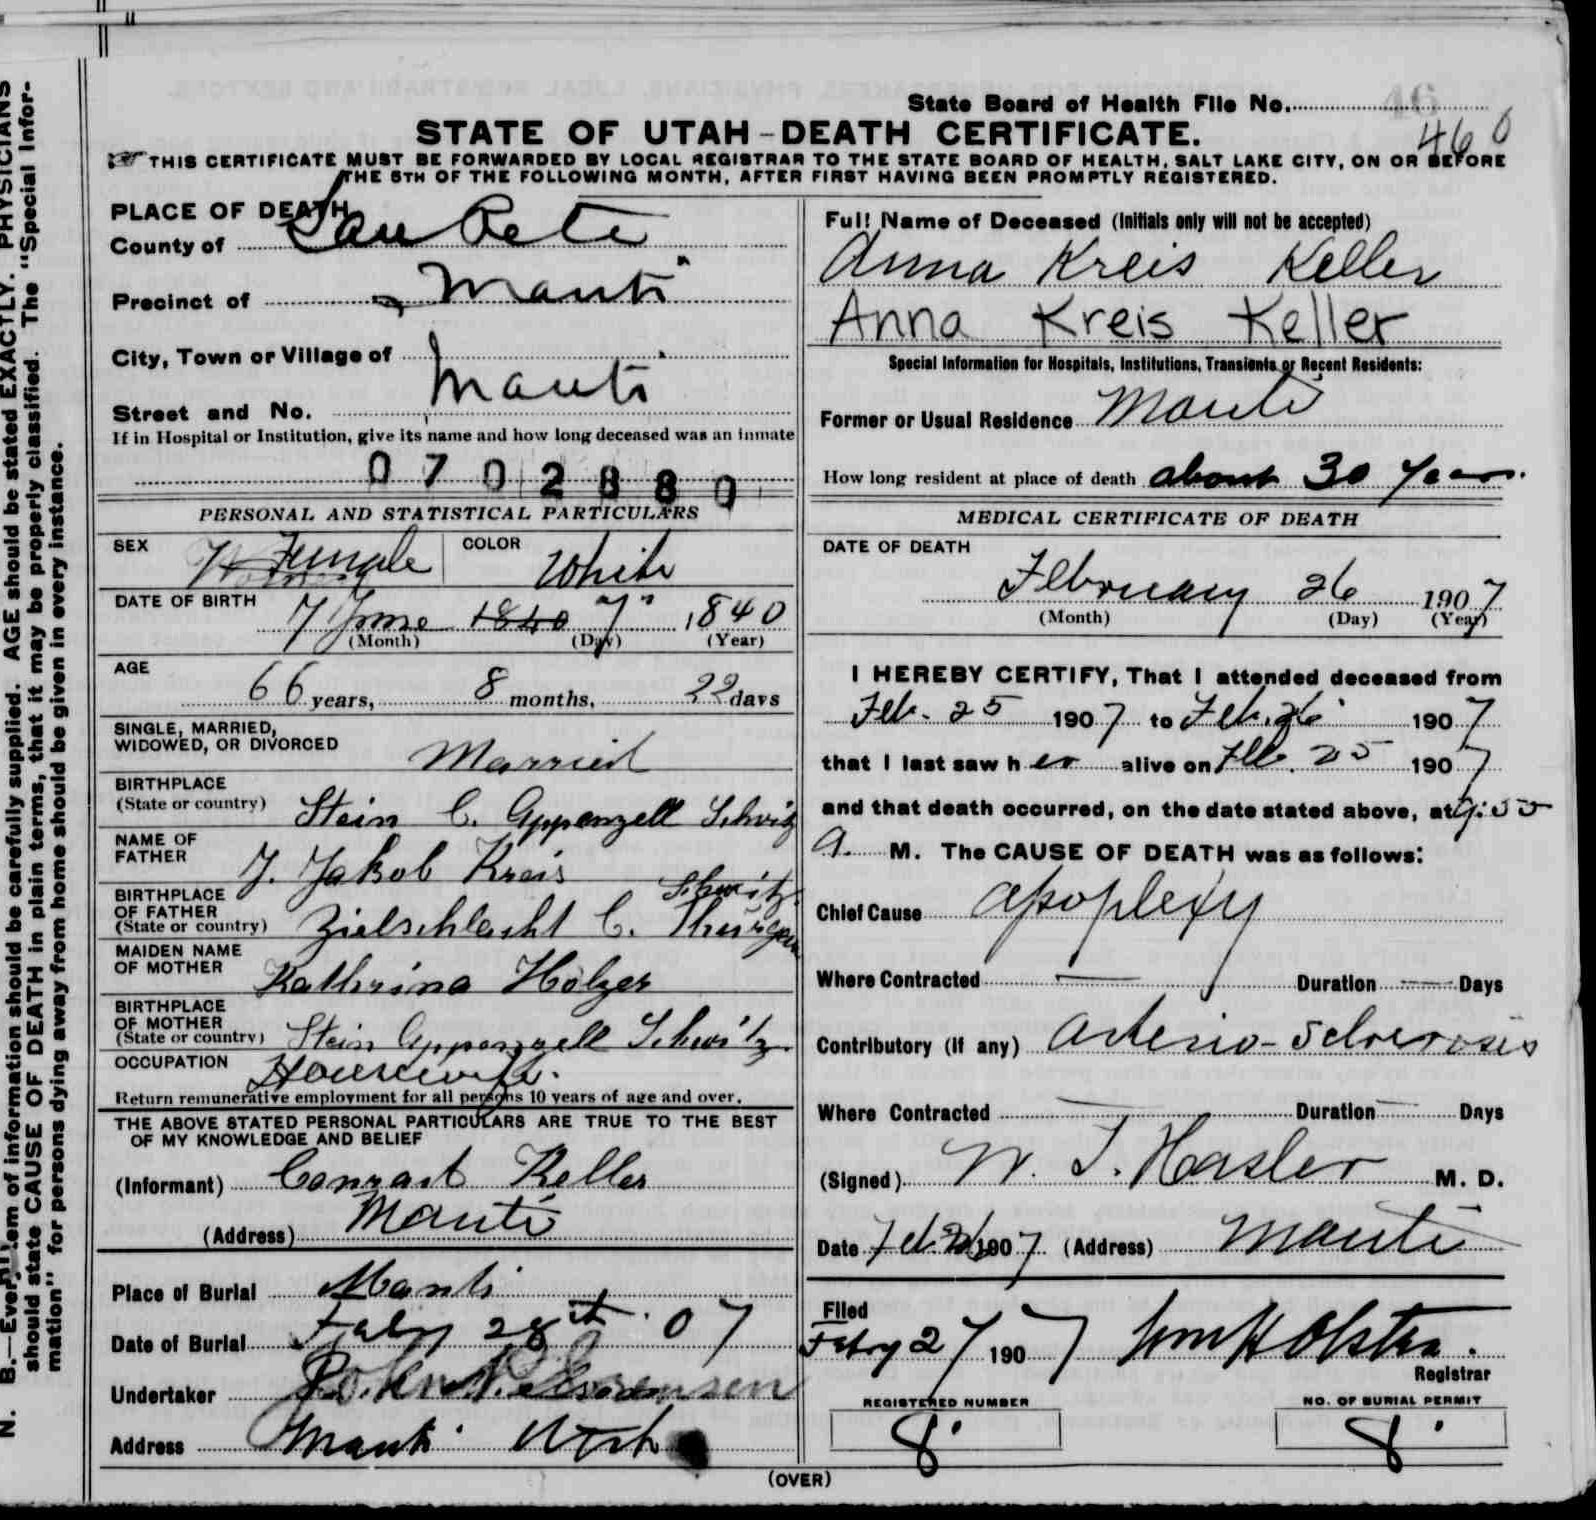 N. B.—Every item of information should be carefully supplied. AGE should be stated EXACTLY. PHYSICIANS
should state CAUSE OF DEATH in plain terms, that it may be properly classified. The "Special Infor-
mation" for persons dying away from home should be given in every instance.
State Board of Health File No. 46
460
STATE OF UTAH-DEATH CERTIFICATE.
THIS CERTIFICATE MUST BE FORWARDED BY LOCAL REGISTRAR TO THE STATE BOARD OF HEALTH, SALT LAKE CITY, ON OR BEFORE
THE 5TH OF THE FOLLOWING MONTH, AFTER FIRST HAVING BEEN PROMPTLY REGISTERED.
PLACE OF DEATH
County of San Pete
Precinct of Manti
City, Town or Village of
Manti
Street and No.
If in Hospital or Institution, give its name and how long deceased was an inmate
0702880
PERSONAL AND STATISTICAL PARTICULARS
SEX Female COLOR White
DATE OF BIRTH 7 June 1840 7" 1840
(Month) (Day) (Year)
AGE
66 years, 8 months, 22 days
SINGLE, MARRIED,
WIDOWED, OR DIVORCED Married
BIRTHPLACE
(State or country) Stein C. Appenzell Schwitz
NAME OF
FATHER J. Jakob Kreis
BIRTHPLACE
OF FATHER Schwitz.
(State or country) Zielschlacht C. Thurgau
MAIDEN NAME
OF MOTHER Kathrina Holzer
BIRTHPLACE
OF MOTHER
(State or country) Stein Appenzell Schwitz.
OCCUPATION Housewife.
Return remunerative employment for all persons 10 years of age and over.
THE ABOVE STATED PERSONAL PARTICULARS ARE TRUE TO THE BEST
OF MY KNOWLEDGE AND BELIEF
(Informant) Conrad Keller
(Address) Manti
Place of Burial Manti
Date of Burial Feby 28th. 07
Undertaker
Address Manti Utah
Full Name of Deceased (Initials only will not be accepted)
Anna Kreis Keller
Anna Kreis Keller
Special Information for Hospitals, Institutions, Transients or Recent Residents:
Former or Usual Residence Manti
How long resident at place of death about 30 Years.
MEDICAL CERTIFICATE OF DEATH
DATE OF DEATH
February 26 1907
(Month) (Day) (Year)
I HEREBY CERTIFY, That I attended deceased from
Feb. 25 1907 to Feb. 26 1907
that I last saw her alive on Feb. 25 1907
and that death occurred, on the date stated above, at 9:50
A. M. The CAUSE OF DEATH was as follows:
Chief Cause Apoplexy
Where Contracted — Duration — Days
Contributory (if any) Arterio-Sclerosis
Where Contracted — Duration — Days
(Signed) W. T. Hasler M. D.
Date Feb 26 1907 (Address) Manti
Filed
Feby 27 1907
Registrar
REGISTERED NUMBER NO. OF BURIAL PERMIT
8. 8.
(OVER)